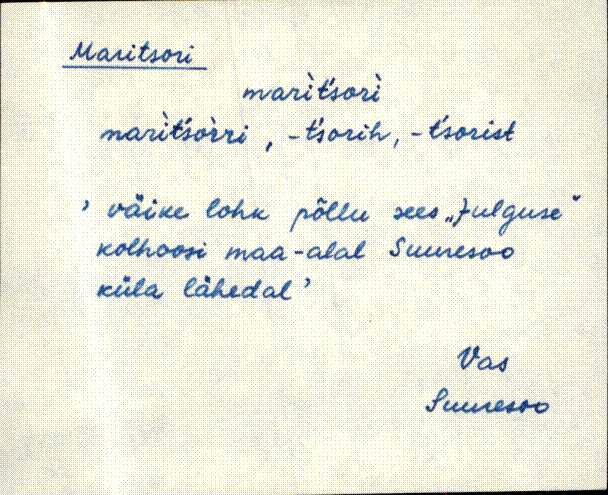 Maritsori
marìt'sorì
marìt'sòrri, -t'sorih, -t'sorist
' väike lohk põllu sees „Julguse"
kolhoosi maa-alal Suuresoo
küla lähedal'
Vas
Suuresoo